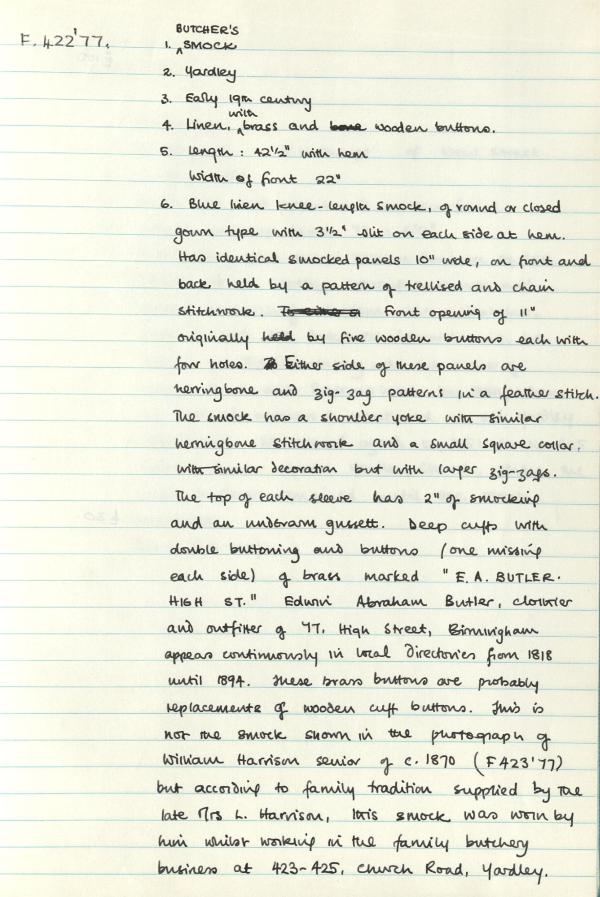 F. 422'77.
BUTCHER'S
1. ^SMOCK
2. Yardley
3. Early 19th century
with
4. Linen, ^brass and bone wooden buttons.
5. Length: 42½" with hem
Width of front 22"
6. Blue linen knee-length smock, of round or closed
gown type with 3½" slit on each side at hem.
Has identical smocked panels 10" wide, on front and
back held by a pattern of trellised and chain
stitchwork. To either Front opening of 11"
originally held by five wooden buttons each with
four holes. Either side of these panels are
herringbone and zig-zag patterns in a feather stitch.
The smock has a shoulder yoke with similar
herringbone stitchwork and a small square collar.
with similar decoration but with larger zig-zags.
The top of each sleeve has 2" of smocking
and an underarm gussett. Deep cuffs with
double buttoning and buttons (one missing
each side) of brass marked "E.A. BUTLER.
HIGH ST." Edwin Abraham Butler, clothier
and outfitter of 77, High Street, Birmingham
appears continuously in local directories from 1818
until 1894. These brass buttons are probably
replacements of wooden cuff buttons. This is
not the smock shown in the photograph of
William Harrison senior of c. 1870 (F423'77)
but according to family tradition supplied by the
late Mrs L. Harrison, this smock was worn by
him whilst working in the family butchery
business at 423-425, Church Road, Yardley.